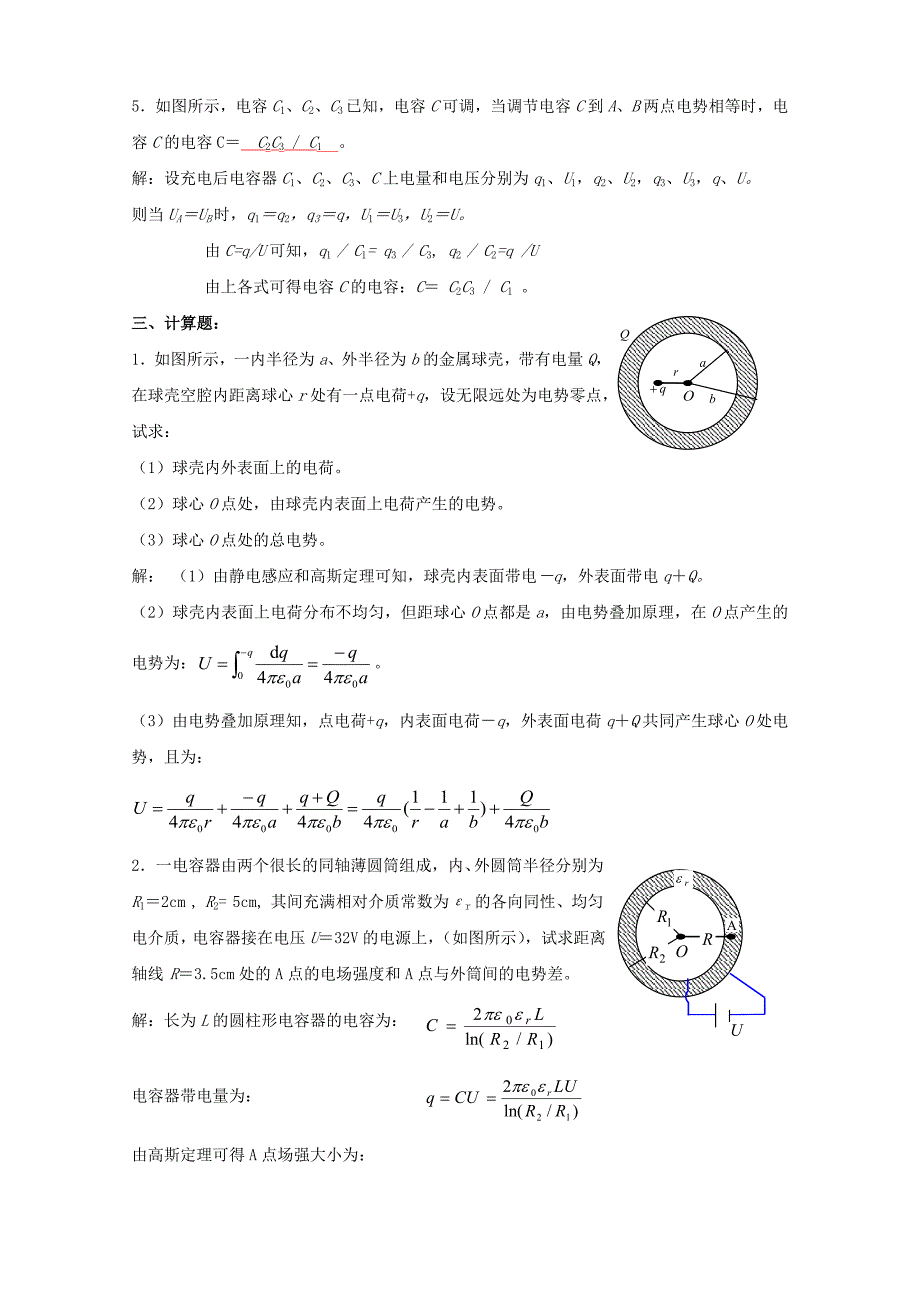 5．如图所示，电容C₁、C₂、C₃已知，电容C可调，当调节电容C到A、B两点电势相等时，电
容C的电容C＝  C₂C₃ / C₁  。
解：设充电后电容器C₁、C₂、C₃、C上电量和电压分别为q₁、U₁，q₂、U₂，q₃、U₃，q、U。
则当U_A＝U_B时，q₁＝q₂，q₃＝q，U₁＝U₃，U₂＝U。
由C=q/U可知，q₁ / C₁= q₃ / C₃，q₂ / C₂=q /U
由上各式可得电容C的电容：C＝ C₂C₃ / C₁ 。
三、计算题：
1．如图所示，一内半径为a、外半径为b的金属球壳，带有电量Q，
在球壳空腔内距离球心r处有一点电荷+q，设无限远处为电势零点，
试求：
Q
a
r
+q
O
b
（1）球壳内外表面上的电荷。
（2）球心O点处，由球壳内表面上电荷产生的电势。
（3）球心O点处的总电势。
解： （1）由静电感应和高斯定理可知，球壳内表面带电－q，外表面带电q＋Q。
（2）球壳内表面上电荷分布不均匀，但距球心O点都是a，由电势叠加原理，在O点产生的
电势为：U = ∫₀^{−q} dq/(4πε₀a) = −q/(4πε₀a) 。
（3）由电势叠加原理知，点电荷+q，内表面电荷－q，外表面电荷q＋Q共同产生球心O处电
势，且为：
U = q/(4πε₀r) + −q/(4πε₀a) + (q+Q)/(4πε₀b) = q/(4πε₀) (1/r − 1/a + 1/b) + Q/(4πε₀b)
2．一电容器由两个很长的同轴薄圆筒组成，内、外圆筒半径分别为
R₁＝2cm , R₂= 5cm, 其间充满相对介质常数为εr的各向同性、均匀
电介质，电容器接在电压U＝32V的电源上，（如图所示），试求距离
轴线R＝3.5cm处的A点的电场强度和A点与外筒间的电势差。
ε_r
R₁
A
R
R₂
O
U
解：长为L的圆柱形电容器的电容为： C = 2πε₀ε_rL / ln( R₂ / R₁ )
电容器带电量为： q = CU = 2πε₀ε_rLU / ln( R₂ / R₁ )
由高斯定理可得A点场强大小为：